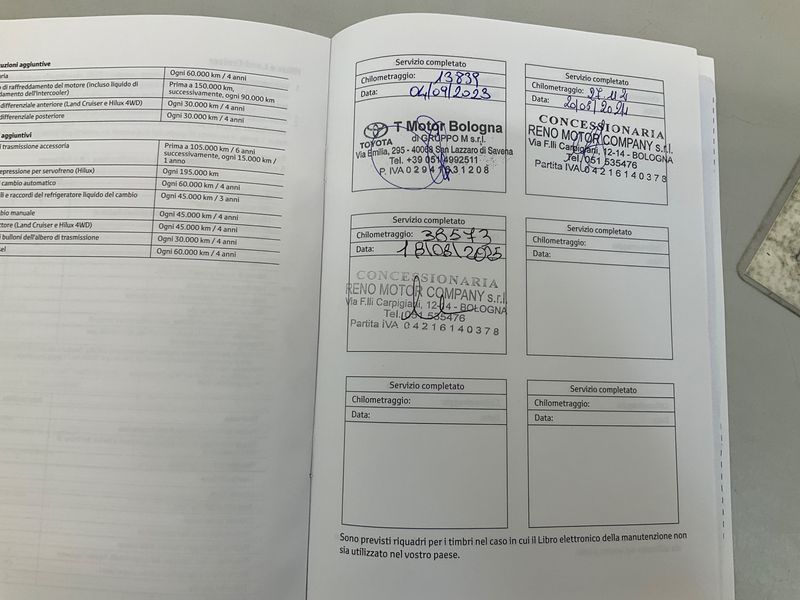 uzioni aggiuntive
Ogni 60.000 km / 4 anni
di raffreddamento del motore (incluso liquido di
damento dell'intercooler)
Prima a 150.000 km,
successivamente, ogni 90.000 km
differenziale anteriore (Land Cruiser e Hilux 4WD)
Ogni 30.000 km / 4 anni
differenziale posteriore
Ogni 30.000 km / 4 anni
aggiuntivi
i trasmissione accessoria
Prima a 105.000 km / 6 anni
successivamente, ogni 15.000 km /
1 anno
epressione per servofreno (Hilux)
Ogni 195.000 km
cambio automatico
Ogni 60.000 km / 4 anni
li e raccordi del refrigeratore liquido del cambio
Ogni 45.000 km / 3 anni
bio manuale
Ogni 45.000 km / 4 anni
ttore (Land Cruiser e Hilux 4WD)
Ogni 45.000 km / 4 anni
i bulloni dell'albero di trasmissione
Ogni 30.000 km / 4 anni
sel
Ogni 60.000 km / 4 anni
Servizio completato
Chilometraggio: 13839
Data: 04/09/2023
TOYOTA
T Motor Bologna
di GRUPPO M s.r.l.
Via Emilia, 295 - 40068 San Lazzaro di Savena
Tel. +39 051 4992511
P. IVA
Servizio completato
Chilometraggio:
Data: 20/05/2024
CONCESSIONARIA
RENO MOTOR COMPANY s.r.l.
Via F.lli Carpigiani, 12-14 - BOLOGNA
Tel. 051 535476
Partita IVA 04216140378
Servizio completato
Chilometraggio: 38573
Data: 18/08/2025
CONCESSIONARIA
RENO MOTOR COMPANY s.r.l.
Via F.lli Carpigiani, 12-14 - BOLOGNA
Tel. 051 535476
Partita IVA 04216140378
Servizio completato
Chilometraggio:
Data:
Servizio completato
Chilometraggio:
Data:
Servizio completato
Chilometraggio:
Data:
Sono previsti riquadri per i timbri nel caso in cui il Libro elettronico della manutenzione non
sia utilizzato nel vostro paese.